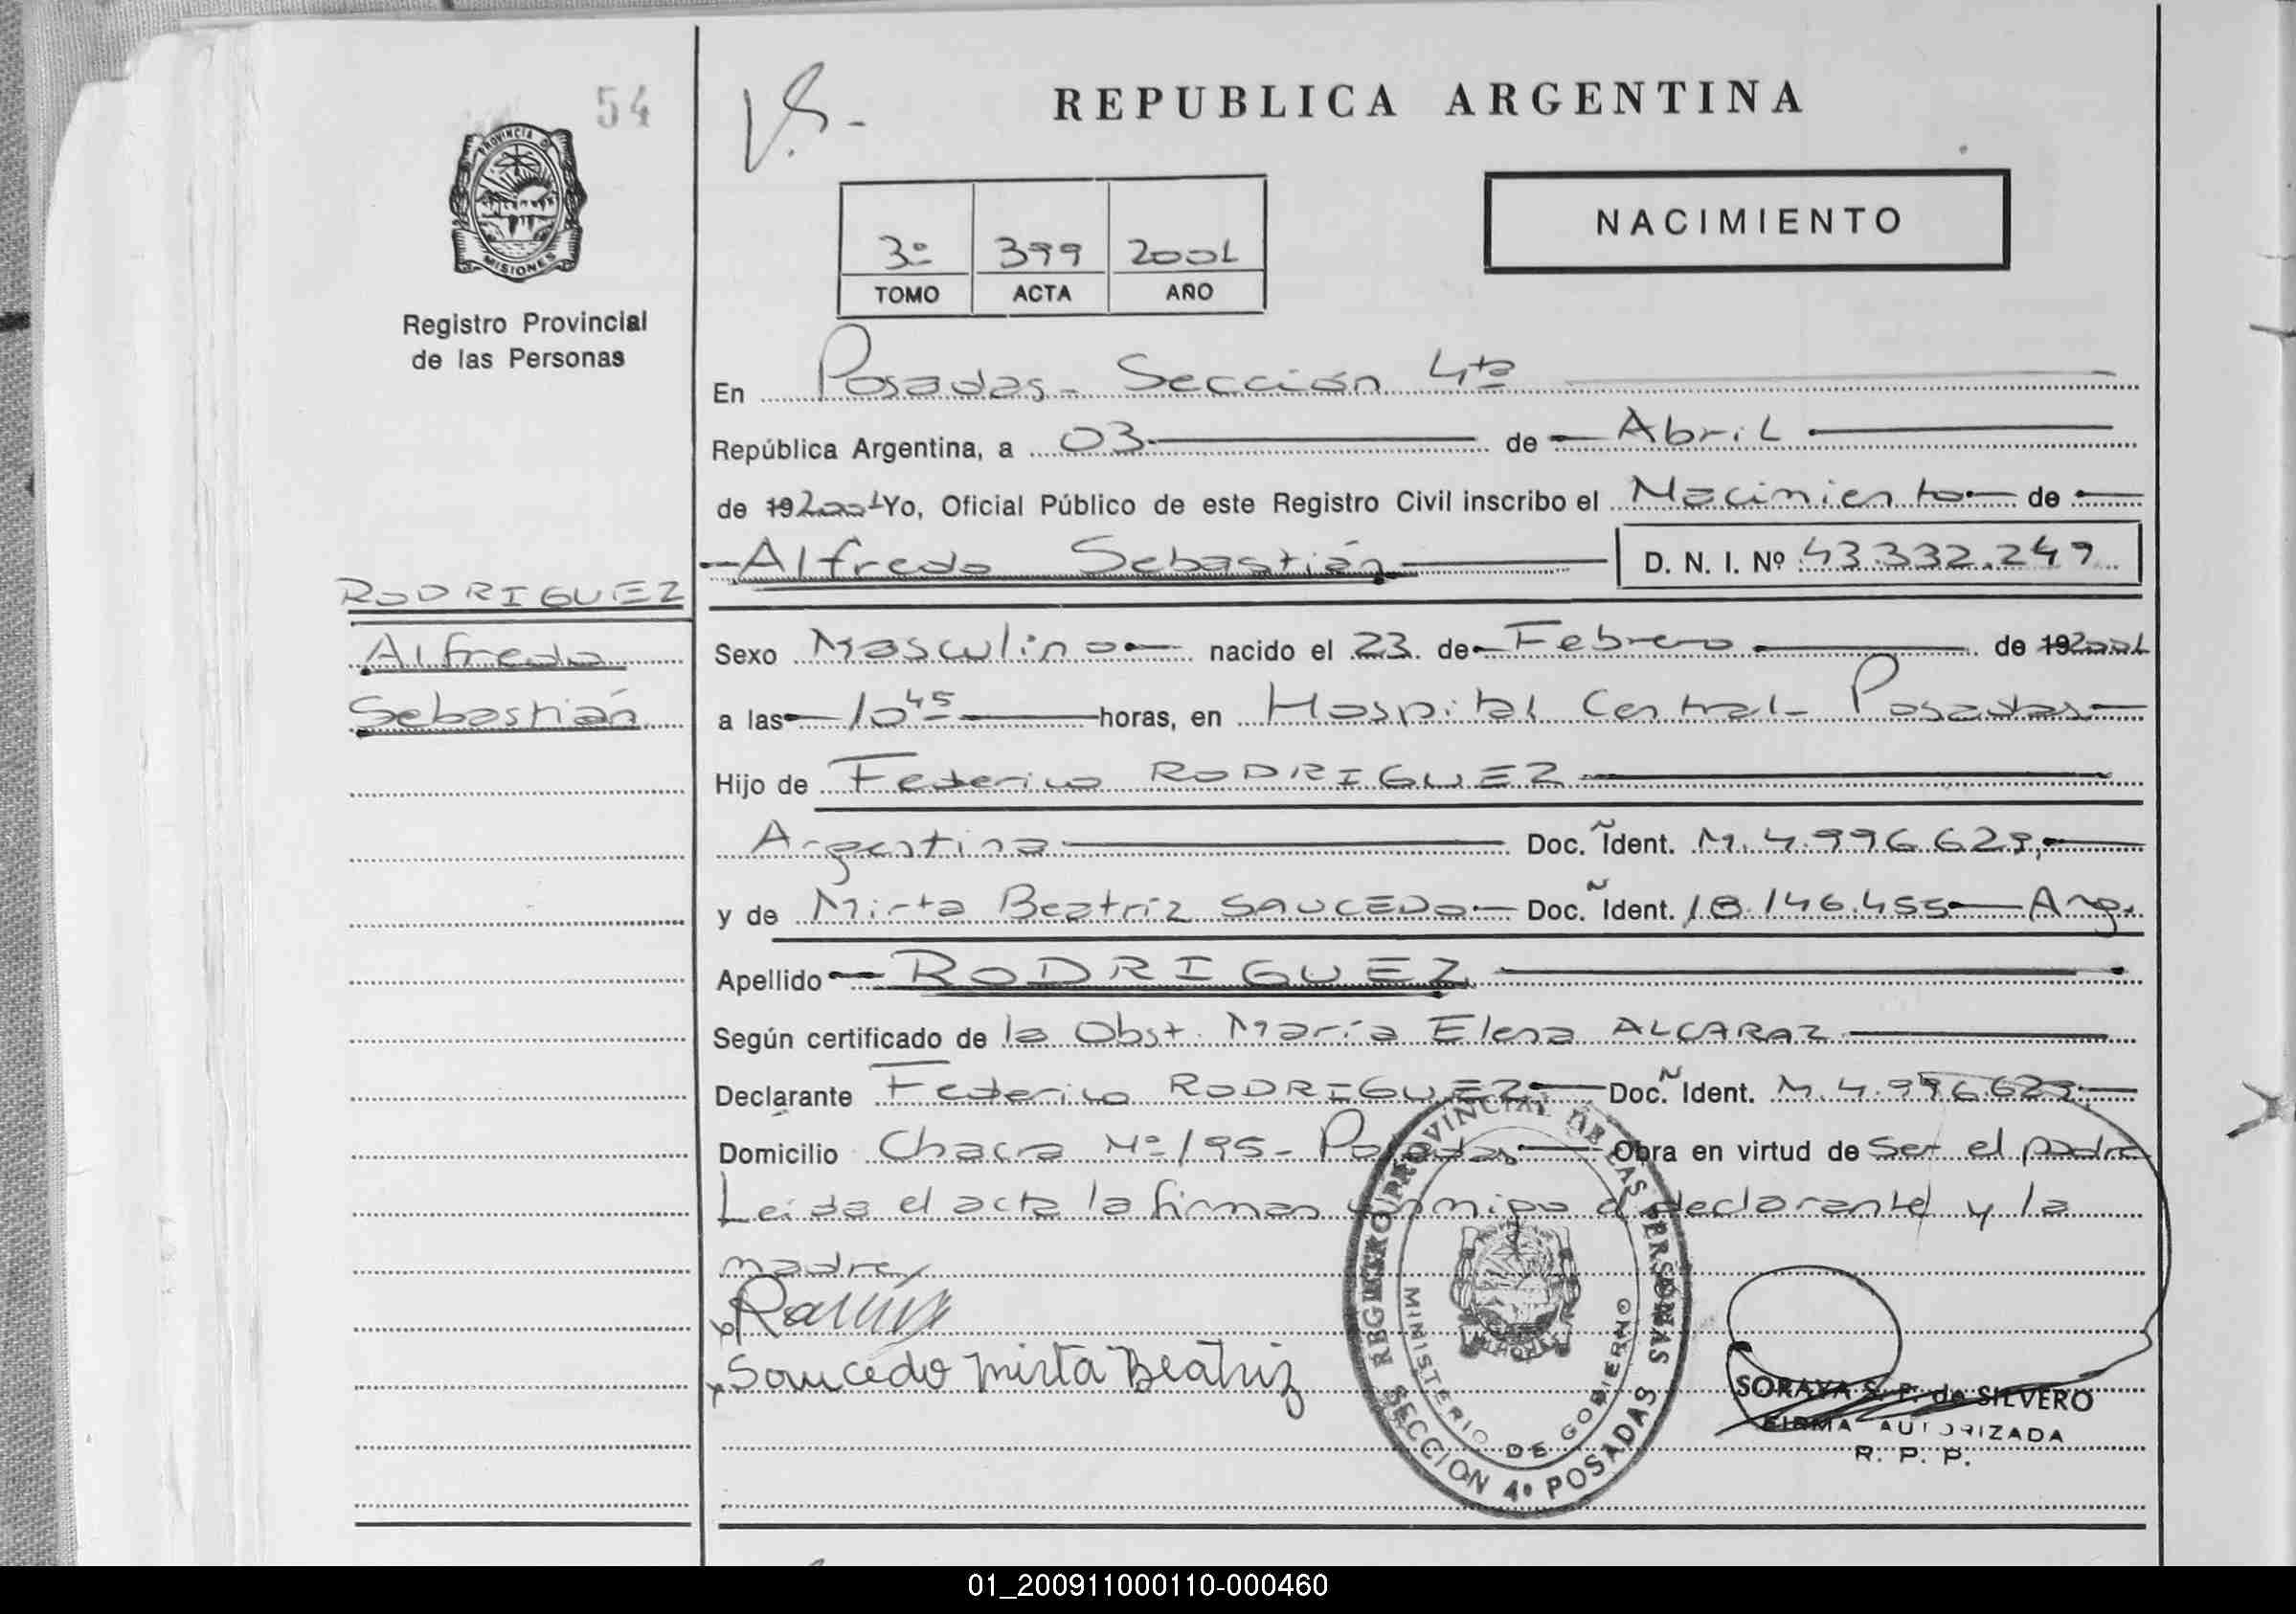 54
V.S.-
REPUBLICA ARGENTINA
PROVINCIA DE
MISIONES
Registro Provincial
de las Personas
3º 399 2001
TOMO ACTA AÑO
NACIMIENTO
En Posadas - Sección 4ta
República Argentina, a 03 de Abril
de 192001 Yo, Oficial Público de este Registro Civil inscribo el Nacimiento de
Alfredo Sebastián D. N. I. Nº 43.332.249
RODRIGUEZ
Alfredo
Sebastián
Sexo Masculino nacido el 23 de Febrero de 192001
a las 10 45 horas, en Hospital Central - Posadas
Hijo de Federico RODRIGUEZ
Argentina Doc. Ident. M. 4.996.629,
y de Mirta Beatriz SAUCEDO Doc. Ident. 18.146.455 Arg.
Apellido RODRIGUEZ
Según certificado de la Obst. María Elena ALCARAZ
Declarante Federico RODRIGUEZ Doc. Ident. M. 4.996.629,
Domicilio Chacra Nº 195 - Posadas Obra en virtud de ser el padre
Leída el acta la firman conmigo el declarante y la
madre
Saucedo Mirta Beatriz
REGISTRO PROVINCIAL DE LAS PERSONAS
MINISTERIO DE GOBIERNO
SECCION 4º POSADAS
SORAYA S. P. de SILVERO
FIRMA AUTORIZADA
R. P. P.
01_200911000110-000460